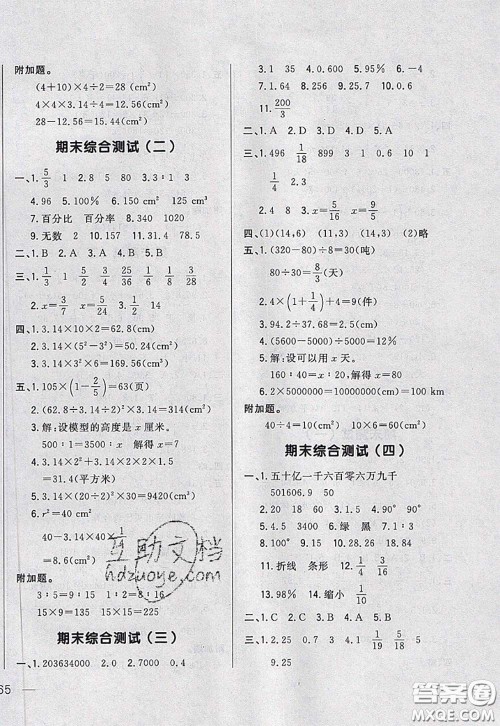 附加题。
(4+10)×4÷2=28(cm²)
4×4×3.14÷4=12.56(cm²)
28-12.56=15.44(cm²)
期末综合测试(二)
一、1. 5/3 1 2.8 5 8 3.3∶1
4.96 5.100% 6.150 cm² 125 cm³
7.百分比 百分率 8.340 1020
9.无数 2 10.π 11.31.4 78.5
二、1.B 2.A 3.B 4.A 5.A
三、1. 5/3 1 5/2 3/24 25/36 1/6 1/8 3/28
2.x=3/7 x=5/24 x=3/2
四、1.3.14×10×2=62.8(cm)
2.3.14×(5²-3²)=50.24(cm²)
3.3.14×6²×3/2=169.56(cm²)
五、1.105×(1-2/5)=63(页)
2.(62.8÷3.14÷2)²×3.14=314(cm²)
3.解:设模型的高度是x厘米。
500∶1=30000∶x 解得x=60
4.3.14×(20÷2)²÷10
=31.4(平方米)
5.3.14×(20÷2)²×30=9420(cm³)
6.r²=40 cm²
=8.6(cm²)
附加题。
3∶5=9∶15 1∶2=8∶16
15×9=135 15×15=225
期末综合测试(三)
一、1.203634000 2.0 2.7000 0.4
65
3.1 35 4.0.5 5.95% 6.-4
7.1.64 8.256 9.25 10.9.6
11. 200/3
二、1.C 2.A 3.D 4.D 5.A
三、1.496 1/18 899 3 9.1 3/4
1/4 2.3 2.x=5/16 x=9/5
四、(1)(14,6) (11,3) (14,3) (2)略
五、1.(320-80)÷3=80(吨)
80÷30=8/3(天)
2.4×(1+1/4)+4=9(件)
3.2.94÷37.68=94.2(cm)
4.(5600-5000)÷5000=12%
5.解:设可以用x天。
160∶40=80∶x x=20
6.2×5000000=10000000(cm)=100 km
附加题。
40÷4=10(cm) 10×6=60(cm²)
期末综合测试(四)
一、1.五十亿一千六百零六万九千
501606.9 2.1.5 3.15 4.90° 90°
5.24 cm³ 3 6.绿 黑 7.1∶3
8.20.28 9.15 10.2 24.86
11.折线 条形 12.40 13.16
14.98% 15.缩小 1/40
二、1.A 2.B 3.D 4.A 5.D
9.25
互助文档
hdzuoye.com
答案圈
MXQE.COM